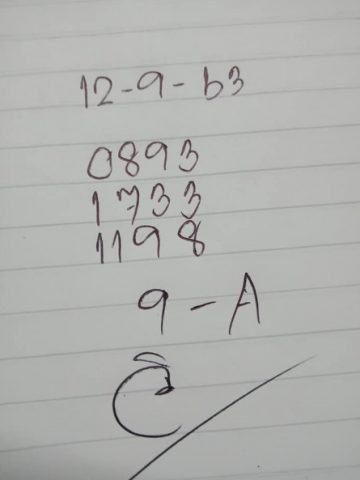 12-9-63
0893
1733
1198
9-A